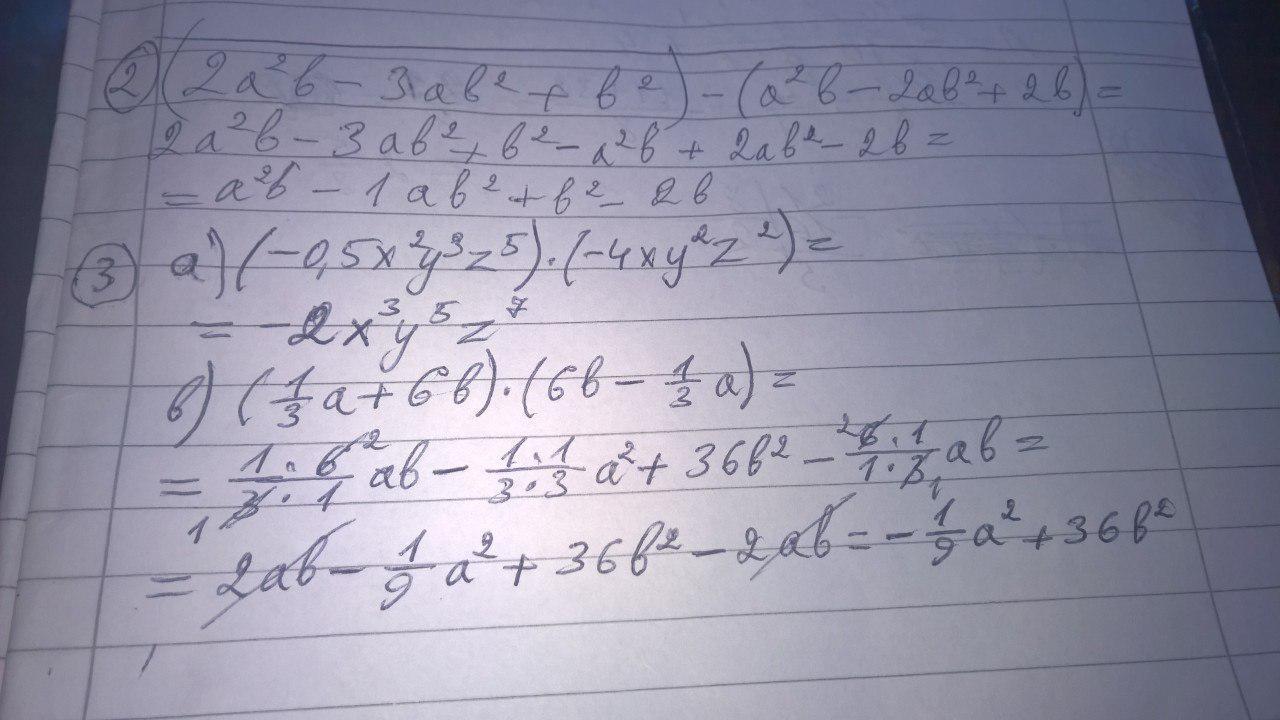 ② (2a²b - 3ab² + b²) - (a²b - 2ab² + 2b) =
2a²b - 3ab² + b² - a²b + 2ab² - 2b =
= a²b - 1ab² + b² - 2b
③ a) (-0,5x²y³z⁵)·(-4xy²z²) =
= -2x³y⁵z⁷
b) (1/3 a + 6b)·(6b - 1/3 a) =
= 1·6²/₁3·1 ab - 1·1/3·3 a² + 36b² - ²6·1/1·3₁ ab =
= 2ab - 1/9 a² + 36b² - 2ab = -1/9 a² + 36b²